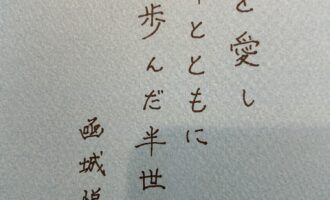 と愛し
とともに
歩んだ半世
函城